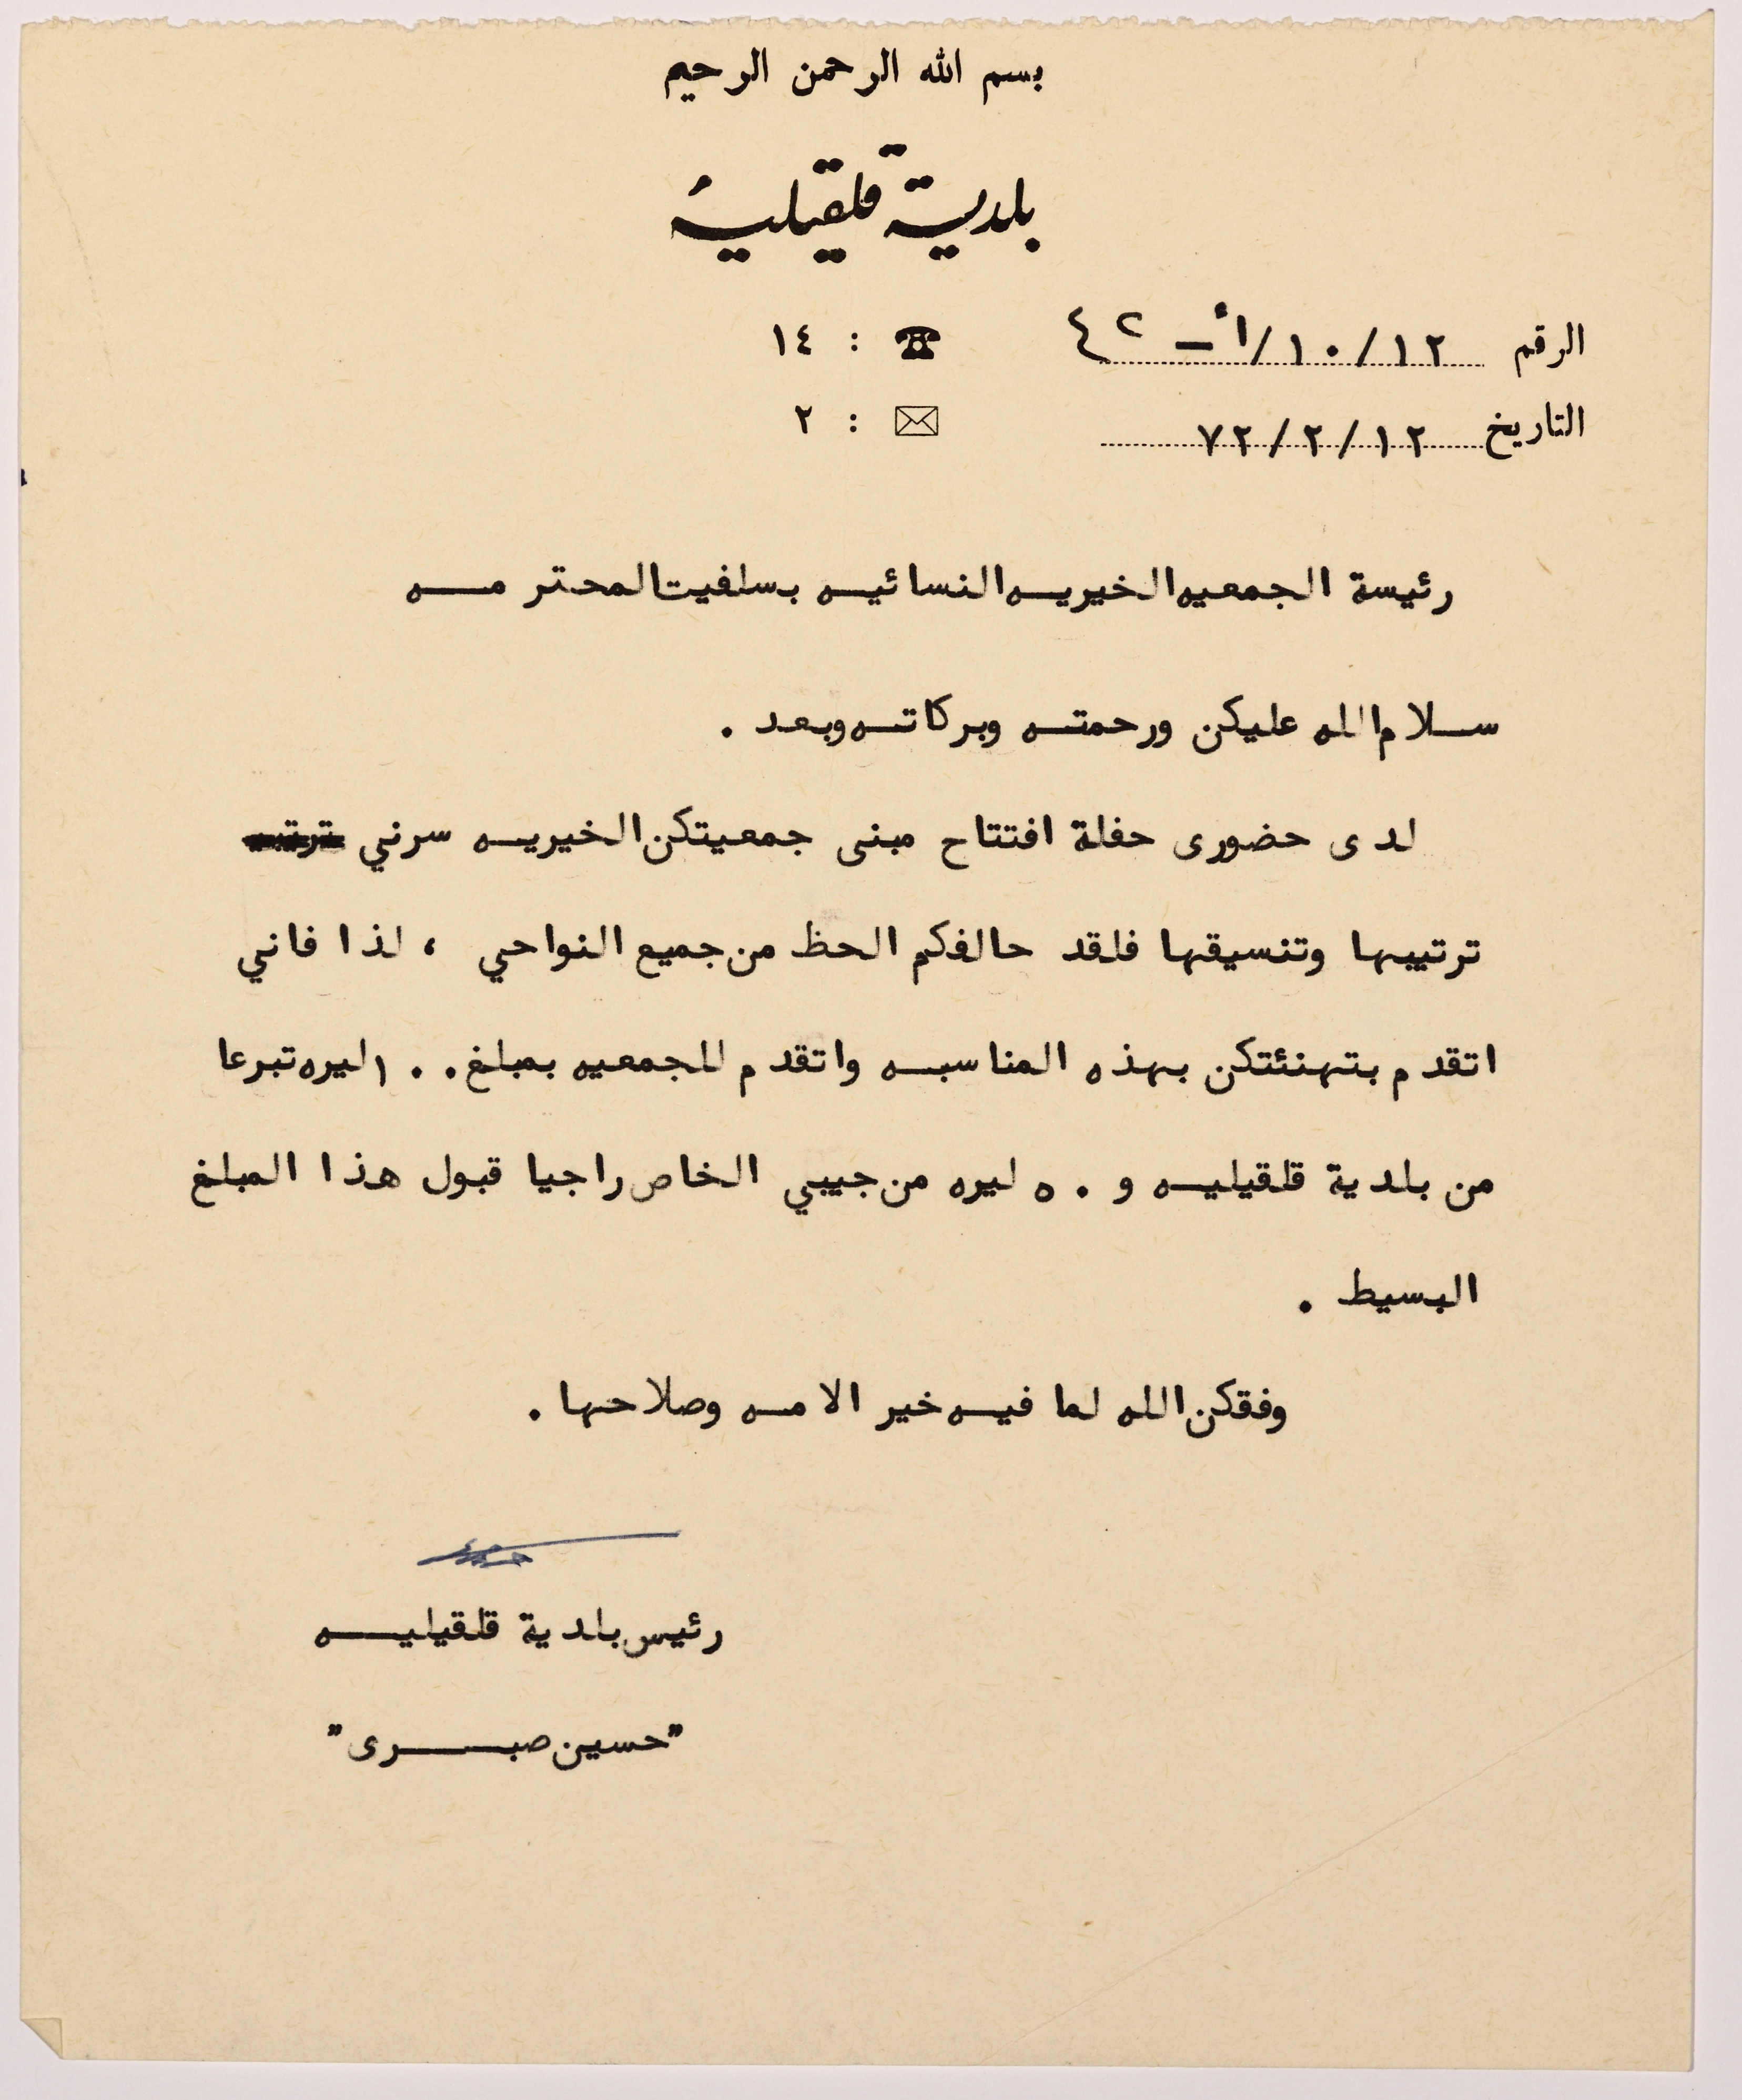 بسم الله الرحمن الرحيم
بلدية قلقيلية
الرقم ١٢/١٠/أ – ٤٢ ☎ : ١٤
التاريخ ١٢/٢/٧٢ ✉ : ٢
رئيسة الجمعيه الخيريه النسائيه بسلفيت المحترمه
سلام الله عليكن ورحمته وبركاته وبعد .
لدى حضورى حفلة افتتاح مبنى جمعيتكن الخيريه سرني
ترتيبها وتنسيقها فلقد حالفكم الحظ من جميع النواحي ، لذا فاني
اتقدم بتهنئتكن بهذه المناسبه واتقدم للجمعيه بمبلغ ١٠٠ ليره تبرعا
من بلدية قلقيليه و ٥٠ ليره من جيبي الخاص راجيا قبول هذا المبلغ
البسيط .
وفقكن الله لما فيه خير الامه وصلاحها .
رئيس بلدية قلقيليه
"حسين صبرى"